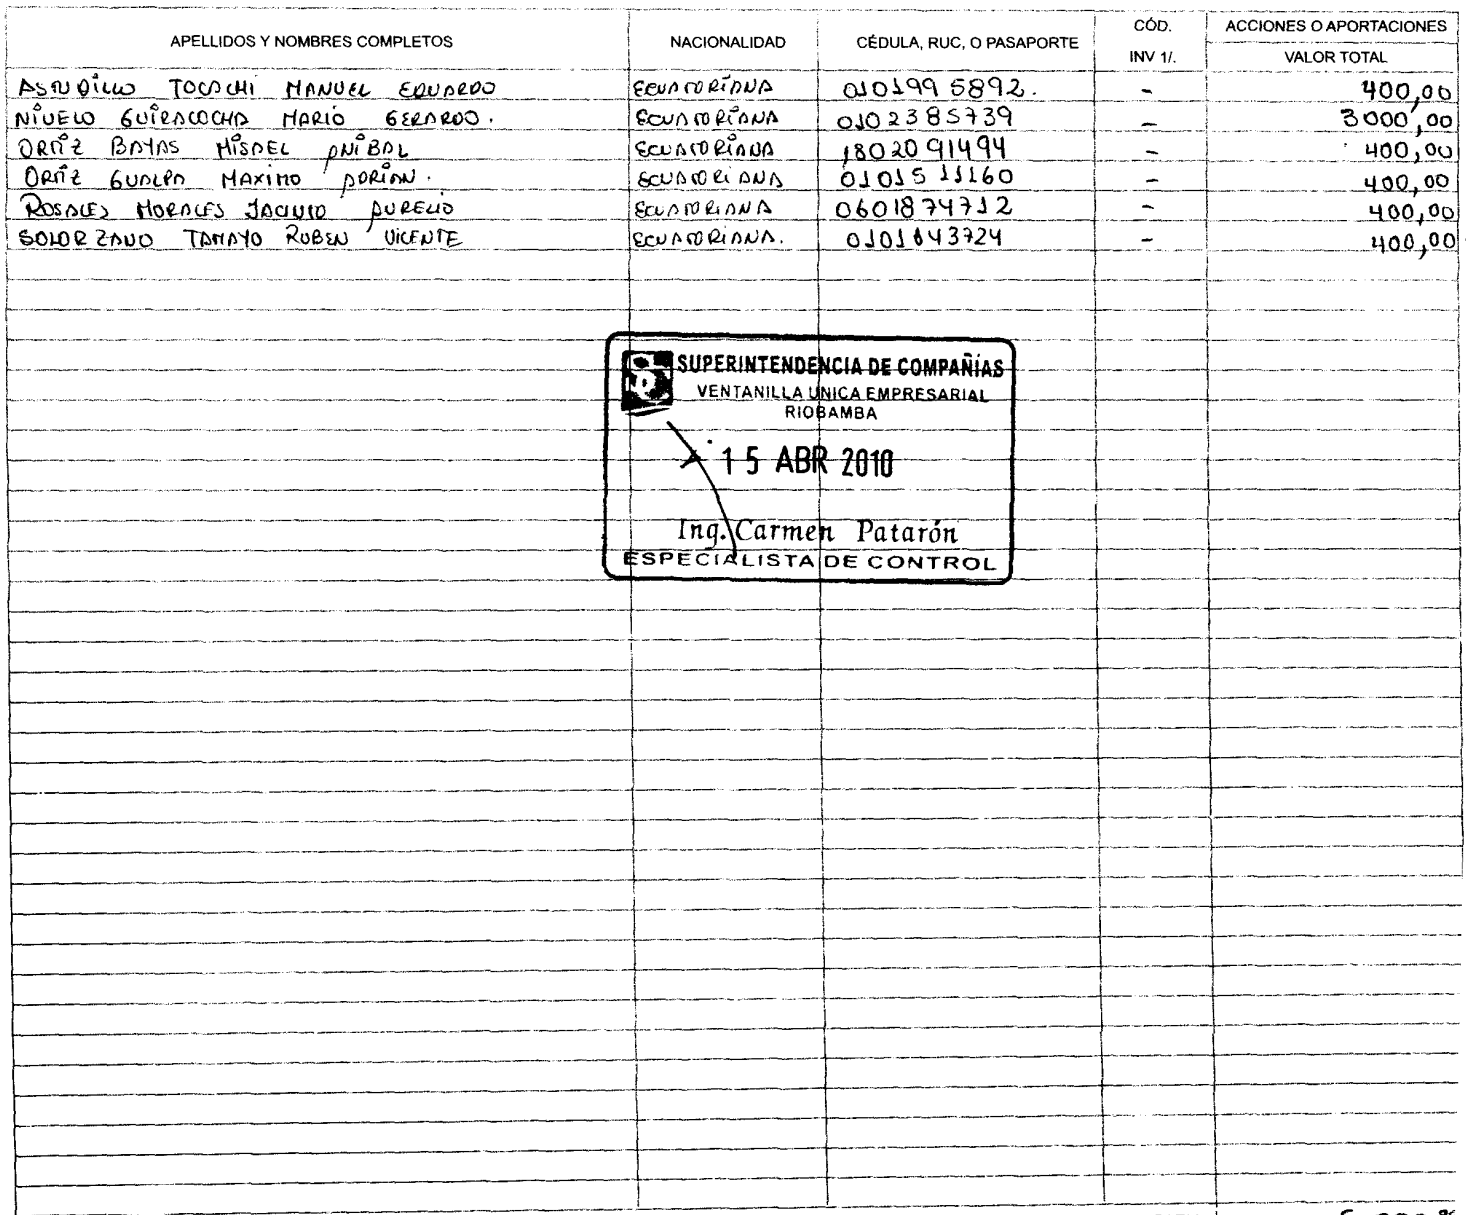 APELLIDOS Y NOMBRES COMPLETOS NACIONALIDAD CÉDULA, RUC, O PASAPORTE CÓD. INV 1/. ACCIONES O APORTACIONES VALOR TOTAL
ASTUDILLO TOCACHI MANUEL EDUARDO ECUATORIANA 0101995892. - 400,00
NIVELO GUIRACOCHA MARIO GERARDO. ECUATORIANA 0102385739 - 3000,00
ORTIZ BAYAS MISAEL ANIBAL ECUATORIANA 1802091494 - 400,00
ORTIZ GUALPA MAXIMO ADRIAN. ECUATORIANA 0101511160 - 400,00
ROSALES MORALES JACINTO AURELIO ECUATORIANA 0601874712 - 400,00
SOLORZANO TAMAYO RUBEN VICENTE ECUATORIANA. 0101643724 - 400,00
SUPERINTENDENCIA DE COMPAÑÍAS
VENTANILLA UNICA EMPRESARIAL
RIOBAMBA
15 ABR 2010
Ing. Carmen Patarón
ESPECIALISTA DE CONTROL